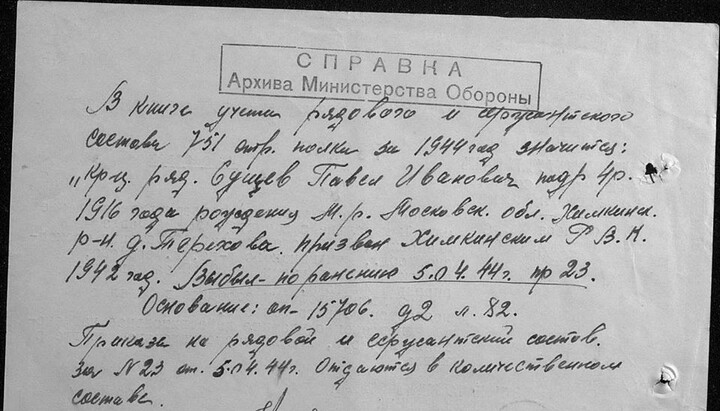 СПРАВКА
Архива Министерства Обороны
В книге учета рядового и сержантского
состава 751 отр. полка за 1944 год значится:
„Кр-ц. ряд. Сущев Павел Иванович подр 4р.
1916 года рождения М.р. Московск. обл. Химкинск.
р-н. д. Терехова. призван Химкинским Р.В.К.
1942 год. Выбыл - по ранению 5.04.44г. пр 23.
Основание: оп - 15706. д2 л. 82.
Приказа на рядовой и сержантский состав.
за N 23 от. 5.04.44г. Отдаются в количественном
составе.